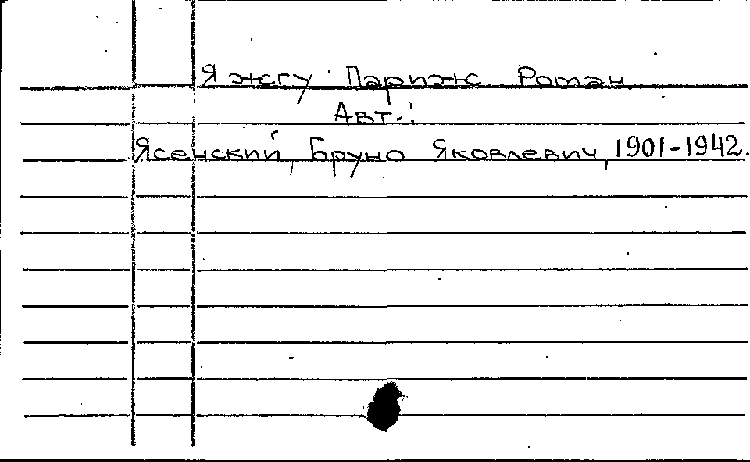 Я жгу Париж Роман
Авт.:
Ясенский, Бруно Яковлевич, 1901-1942.